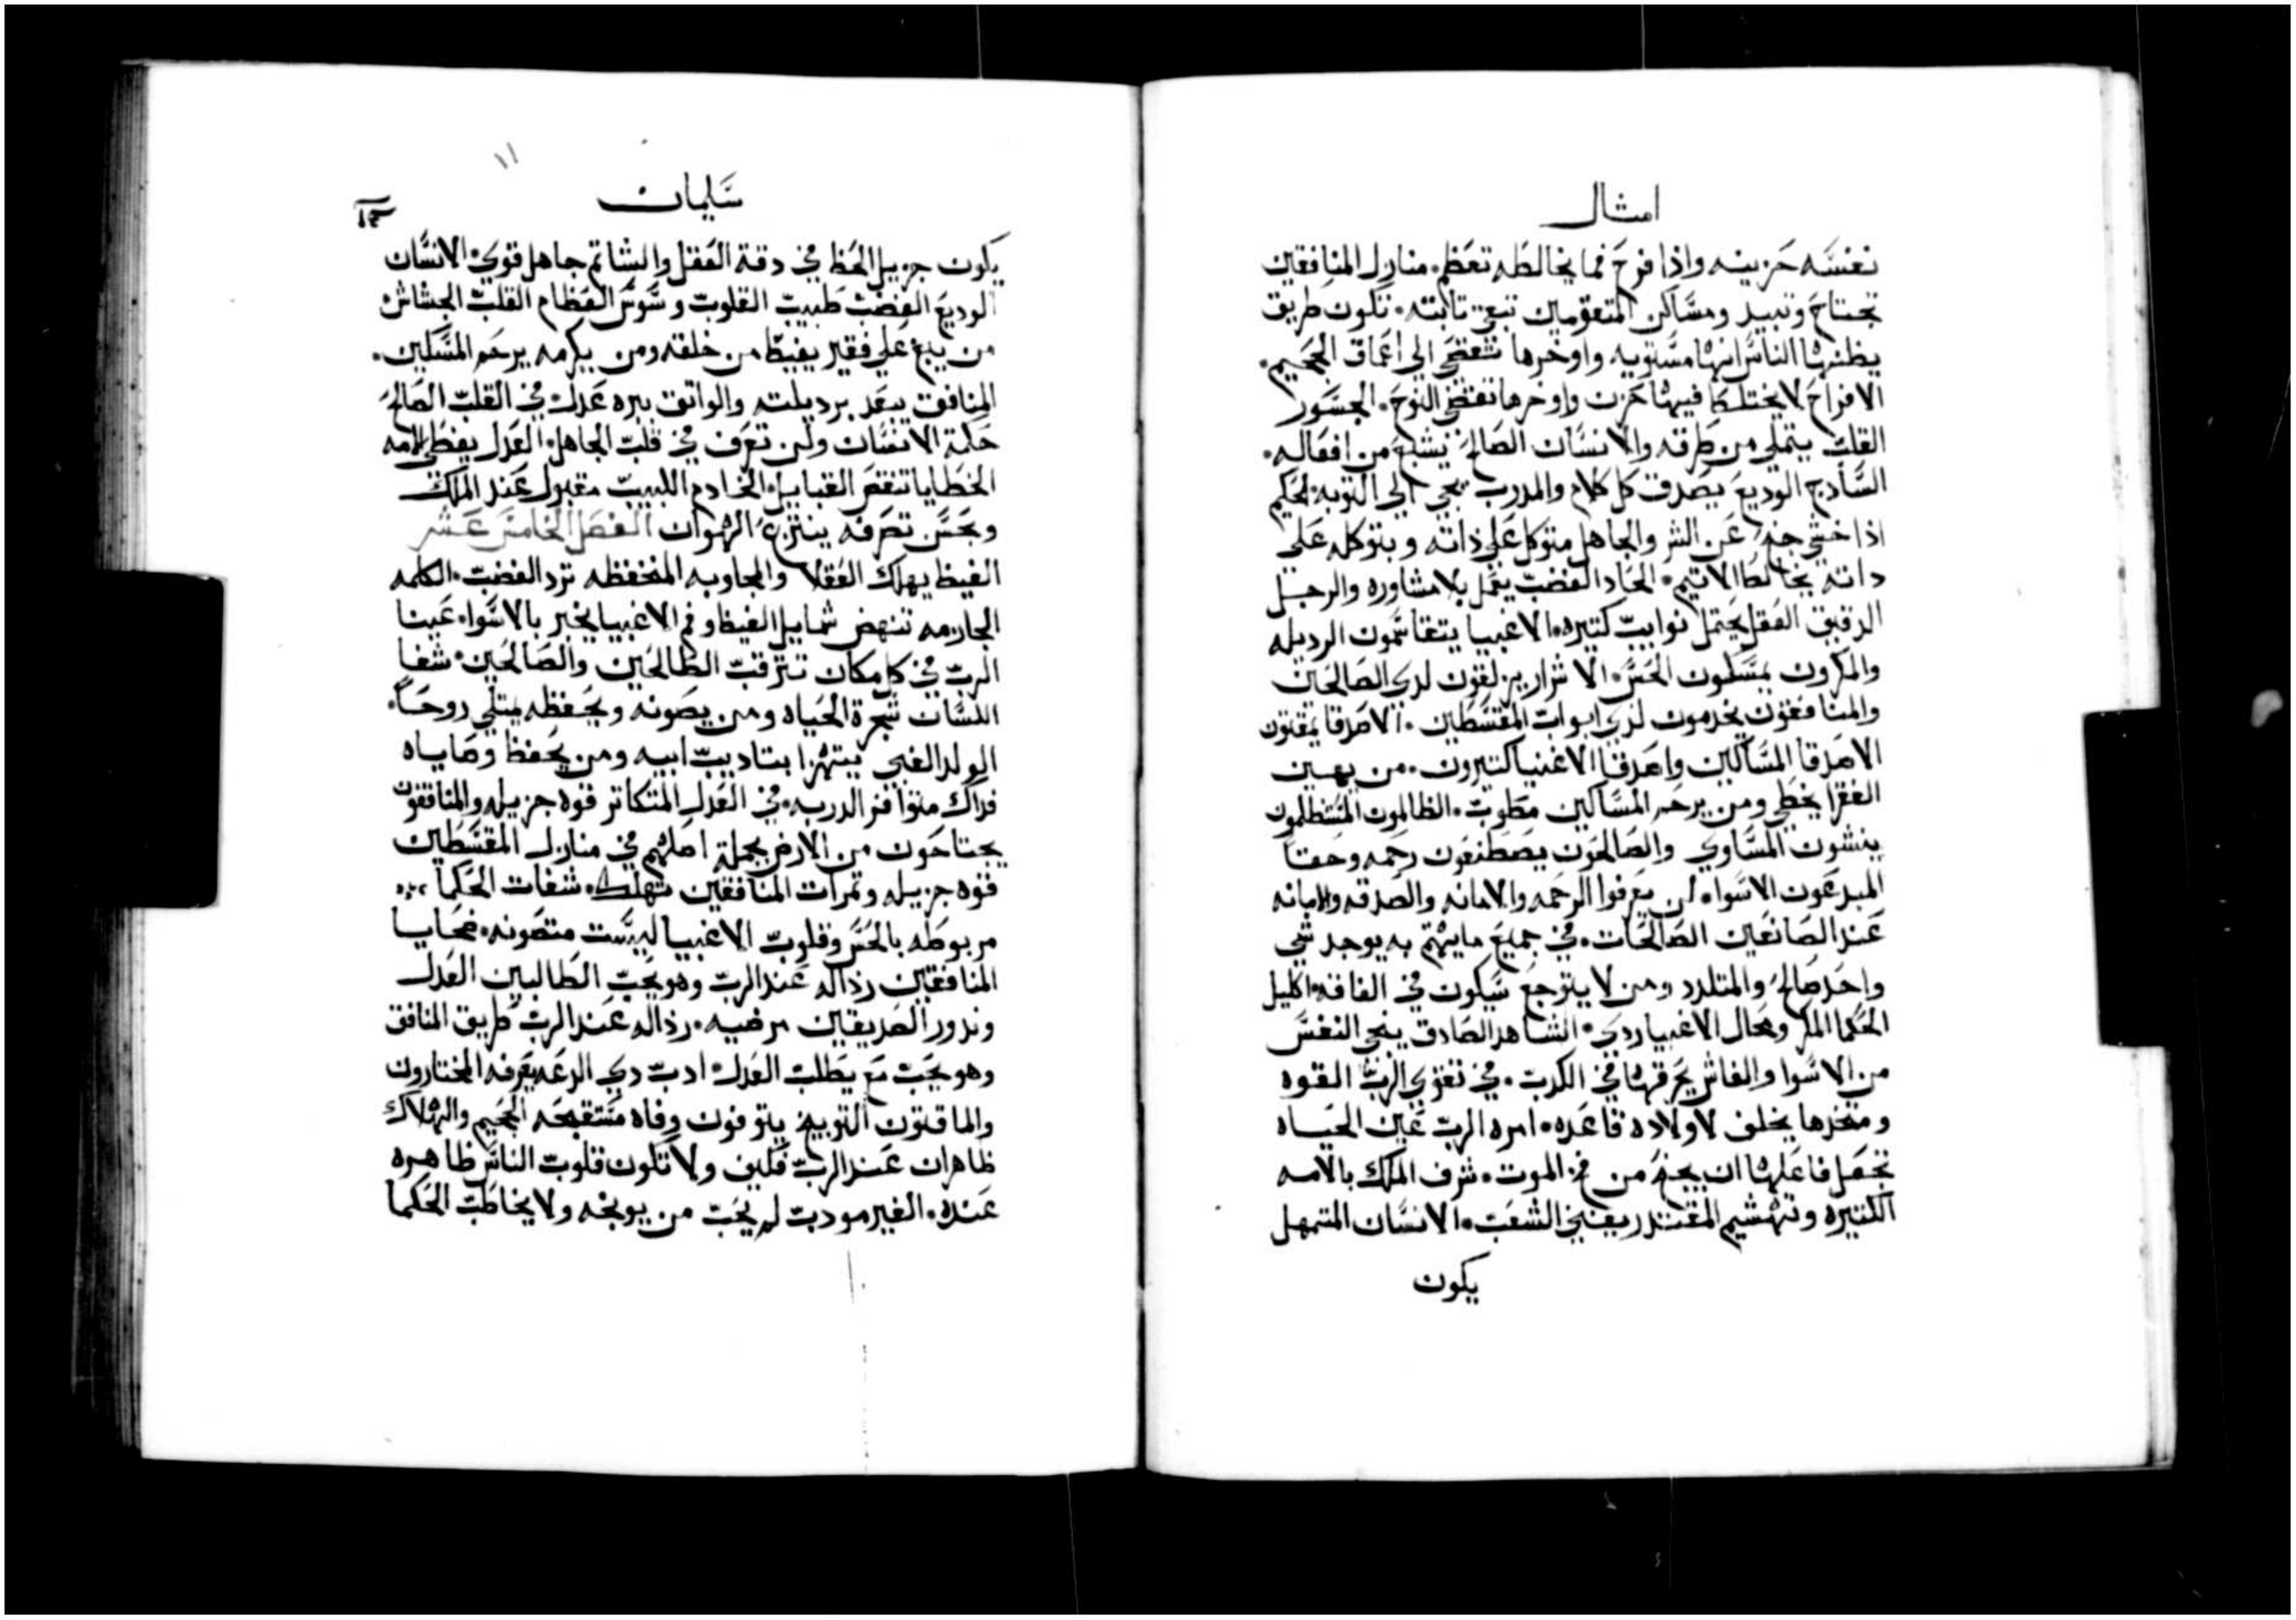 امثال
نفسه حزينه واذا فرح فما يخالطه تعظم. منازل المنافقين
تجتاح وتبيد ومساكن المتقومين تبقي تابته. تكون طريق
يظنها الناس انها مستويه واوخرها تتعضي الي اعماق الجحيم.
الافراح لا يختلط فيها حزن واوخرها تفتضي النوح. الجسور
القلب يتملي من طرقه والانسان الصالح يشبع من افعاله.
السادج الوديع يصدق كل كلام والمدرب يجي الي التوبه. الحكيم
اذا خشي جنح عن الشر والجاهل متوكل علي ذاته وبتوكله علي
داته يخالط الاتيم. الحاد الغضب يعمل بلا مشاوره والرجل
الدقيق العقل يحتمل نوايب كتيره. الاغبيا يتقاسمون الرديله
والمكرون يمسكون الحس. الاشرار يزلقون لدي الصالحين
والمنافقون يخدمون لدي ابواب المقسطين. الاصدقا يمقتون
الاصدقا المساكين واصدقا الاغنيا كتيرون. من يهين
الفقرا يخطي ومن يرحم المساكين مطوب. الظالمون المستظلمون
ينشون المساوي والصالحون يصطنعون رحمه وحقا
المبدعون الاسوا. لن يعرفوا الرحمه والامانه والصدقه والامانه
عند الصانعين الصالحات. في جميع ما يهتم به يوجد شي
واحد صالح والمتلدد ومن لا يتوجع سيكون في الفاقه. اكليل
الحكما المكر ومحال الاغبيا ردي. الشاهد الصادق ينجي النفس
من الاسوا والغاش يحرقها في الكدب. في تقوي الرب القوه
ومتخدها يخلف لاولاده قاعده. امره الرب عين الحياه
تجعل فاعلها ان يجنح من فخ الموت. شرف الملك بالامه
الكتيره وتهشيم المقتدر يفني الشعب. الانسان المتمهل
يكون
سليمان
يكون جزيل الحظ في دقة العقل والشاتم جاهل قوي. الانسان
الوديع الغضب طبيب القلوب وسوس العظام القلب الجشاش
من يبغ علي فقير يغيظ من خلقه ومن يكرمه يرحم المسكين.
المنافق يبعد برديلته والواتق ببره عدل. في القلب الصالح
حكمة الانسان ولن تعرف في قلب الجاهل. العدل يغطي الامه
الخطايا تنقص القبايل. الخادم اللبيب مقبول عند الملك
وبحسن تصرفه ينتزع الهوان الفصل الخامس عشر
الغيظ يهلك العقلا والمجاوبه المنخفظه ترد الغضب. الكلمه
الجارمه تنهض شمايل الغيظ وفم الاغبيا يخبر بالاسوا. عينا
الرب في كل مكان تترقب الطالحين والصالحين. شفا
اللسان شجرة الحياه ومن يصونه ويحفظه يمتلي روحا.
الولد الغبي يتهزا بتاديب ابيه ومن يحفظ وصاياه
فداك متوافز الدربه. في العدل المتكاتر قوه جزيله والمنافقون
يجتاحون من الارض بجملة اصلهم في منازل المقسطين
قوه جزيله وتمرات المنافقين تهلك. شفات الحكما
مربوطه بالحس وقلوب الاغبيا ليست متصونه. ضحايا
المنافقين رذاله عند الرب وهو يحب الطالبين العدل
ونذور الصديقين مرضيه. رذاله عند الرب طريق المنافق
وهو يحب مع يطلب العدل. ادب دي الدعه يعرفه المختارون
والماقتون التوبيخ يتوفون وفاه مستقبحه الجحيم والهلاك
ظاهران عند الرب فكيف ولا تكون قلوب الناس ظاهره
عنده. الغير مودب لم يحب من يوبخه ولا يخاطب الحكما